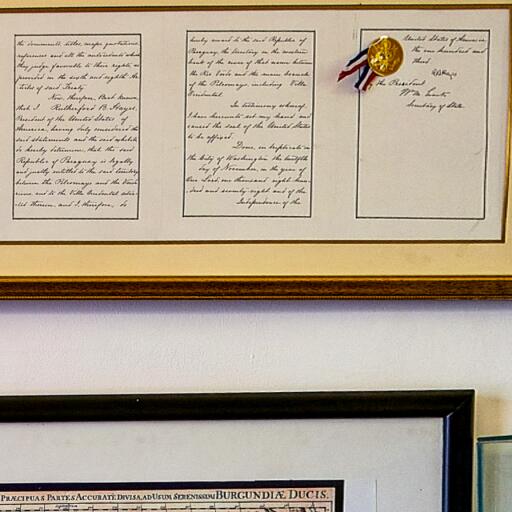 the documents, titles, maps quotations,
references and all the antecedents which
they judge favorable to their rights, as
provided in the sixth and eighth Ar-
ticles of said Treaty.
Now, therefore, Be it known,
that I, Rutherford B. Hayes,
President of the United States of
America, having duly considered the
said statements and the said exhibits
do hereby determine, that the said
Republic of Paraguay is legally
and justly entitled to the said territory
between the Pilcomayo and the Verde
rivers and to the Villa Occidental situ-
ated therein, and I, therefore, do
hereby award to the said Republic of
Paraguay, the territory on the western
bank of the river of that name between
the Rio Verde and the main branch
of the Pilcomayo, including Villa
Occidental.
In testimony whereof,
I have hereunto set my hand and
caused the seal of the United States
to be affixed.
Done, in triplicate in
the City of Washington, the twelfth
day of November, in the year of
Our Lord, one thousand eight hun-
dred and seventy eight and of the
Independence of the
United States of America
the one hundred and
third.
RBHayes
the President
Wm M. Evarts
Secretary of State
PRÆCIPUAS PARTES ACCURATÈ DIVISA, AD USUM SERENISSIMI BURGUNDIÆ DUCIS.